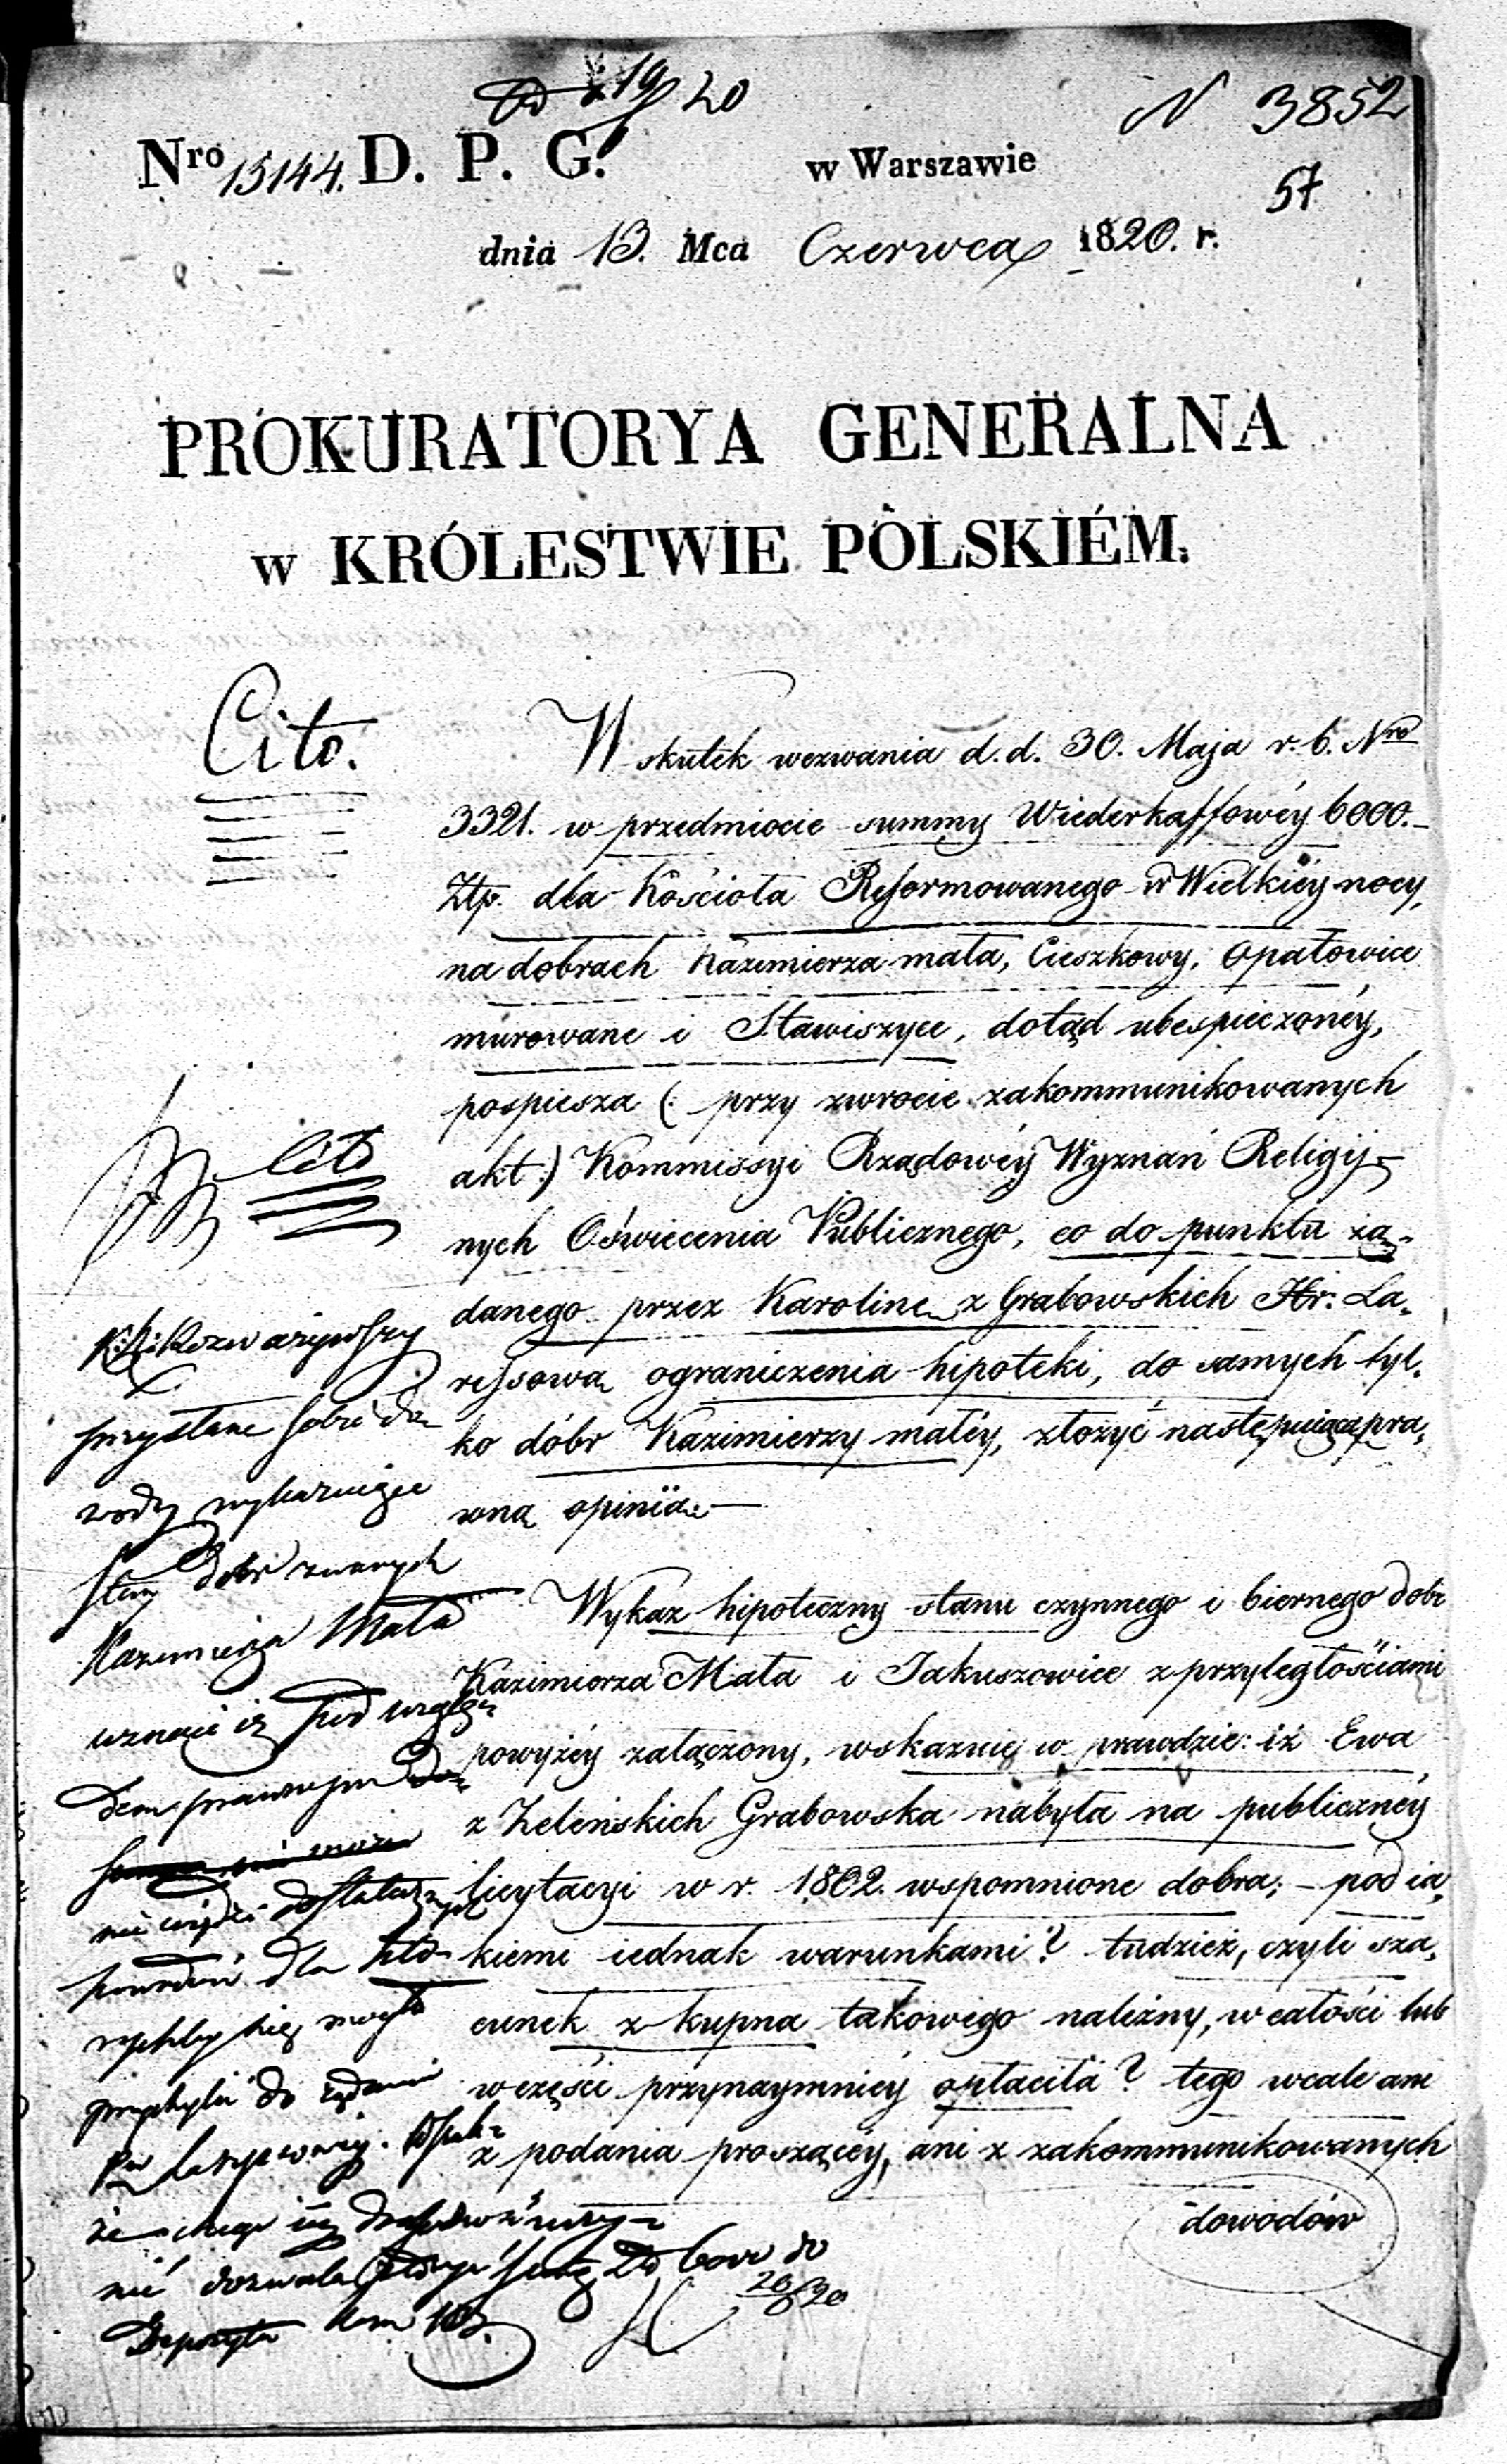 19/6 20
N 3852
Nro 15144. D. P. G.
w Warszawie
57
dnia 13. Mca Czerwca 1820. r.
PROKURATORYA GENERALNA
w KRÓLESTWIE POLSKIÉM.
Cito.
W skutek wezwania d. d. 30. Maja r. b. Nro
3321. w przedmiocie summy Wiederkaffowéy 6000.
Ztp. dla Kościoła Reformowanego w Wielkiéy nocy,
na dobrach Kazimierza mała, Cieszkowy, Opatowice
murowane i Stawiszyce, dotąd ubespieczonéy,
pospiesza (: przy zwrocie zakommunikowanych
akt :) Kommissyi Rządowéy Wyznań Religij-
nych Oświecenia Publicznego, co do punktu żą-
danego przez Karolinę z Grabowskich Hr: La-
ryssową ograniczenia hipoteki, do samych tyl-
ko dóbr Kazimierzy małéy, złożyć następuiącą pra-
wną opinią.
Wykaz hipoteczny stanu czynnego i biernego dobr
Kazimierza Mała i Jakuszowice z przyległościami
powyżéy załączony, wskazuie w prawdzie: iż Ewa
z Zeleńskich Grabowska nabyła na publicznéy
licytacyi w r. 1802. wspomnione dobra; – pod ia-
kiemi iednak warunkami? tudzież, czyli sza-
cunek z kupna takowego należny, w całości lub
w części przynaymniéy opłaciła? tego wcale ani
z podania proszącéy, ani z zakommunikowanych
dowodów
Cito
rozważywszy
przysłane sobie do-
wody wykazuiące
stan dobr zwanych
Kazimierza Mała
uznaie iż pod wzglę-
dem prawnym
nie widzi dostatecznych
powodów dla któ-
rychby się mogła
przychylić do żądania
że
nie dozwala 6000 do
Depozytu
20/6 20